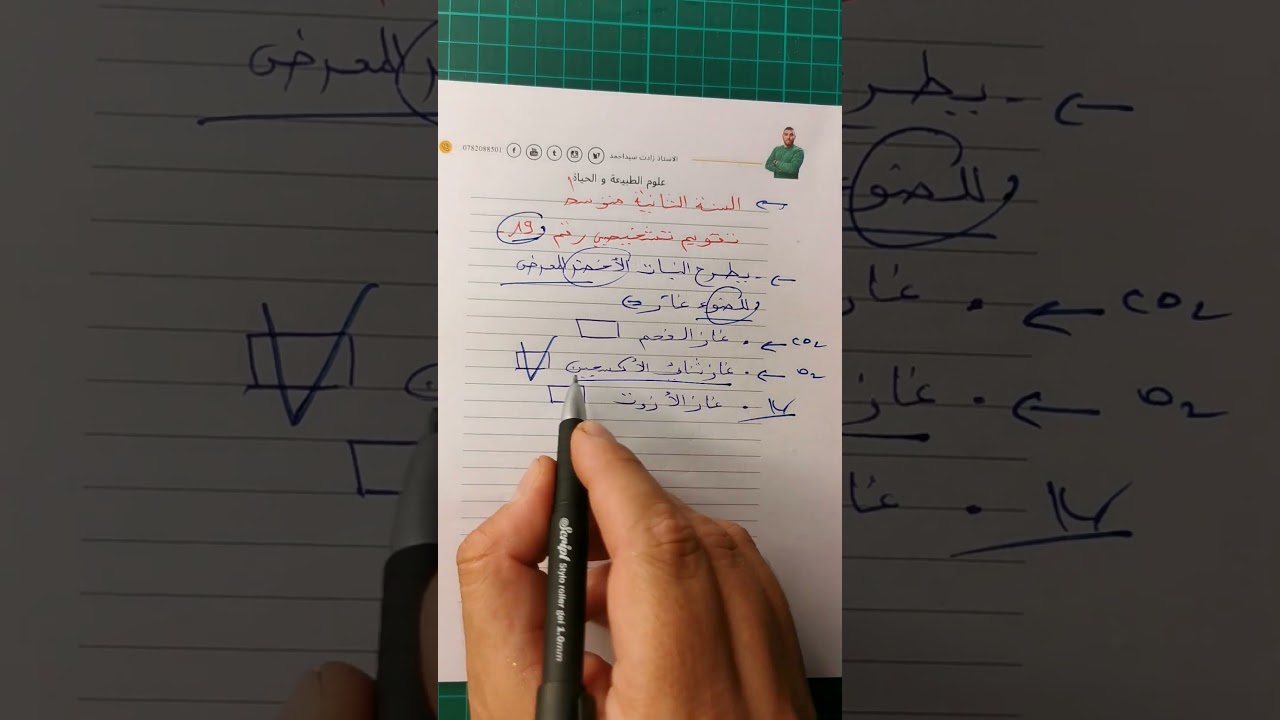 الاستاذ زادت سيداحمد 0782088501
علوم الطبيعة و الحياة
← السنة الثانية متوسط
تقويم تشخيصي رقم 19
← - يطرح النبات الأخضر المعرض
للضوء غاز :
CO2 ← . غاز الفحم
O2 ← . غاز ثنائي الأكسجين
. غاز الأزوت
Script Stylo roller gel 1.0mm